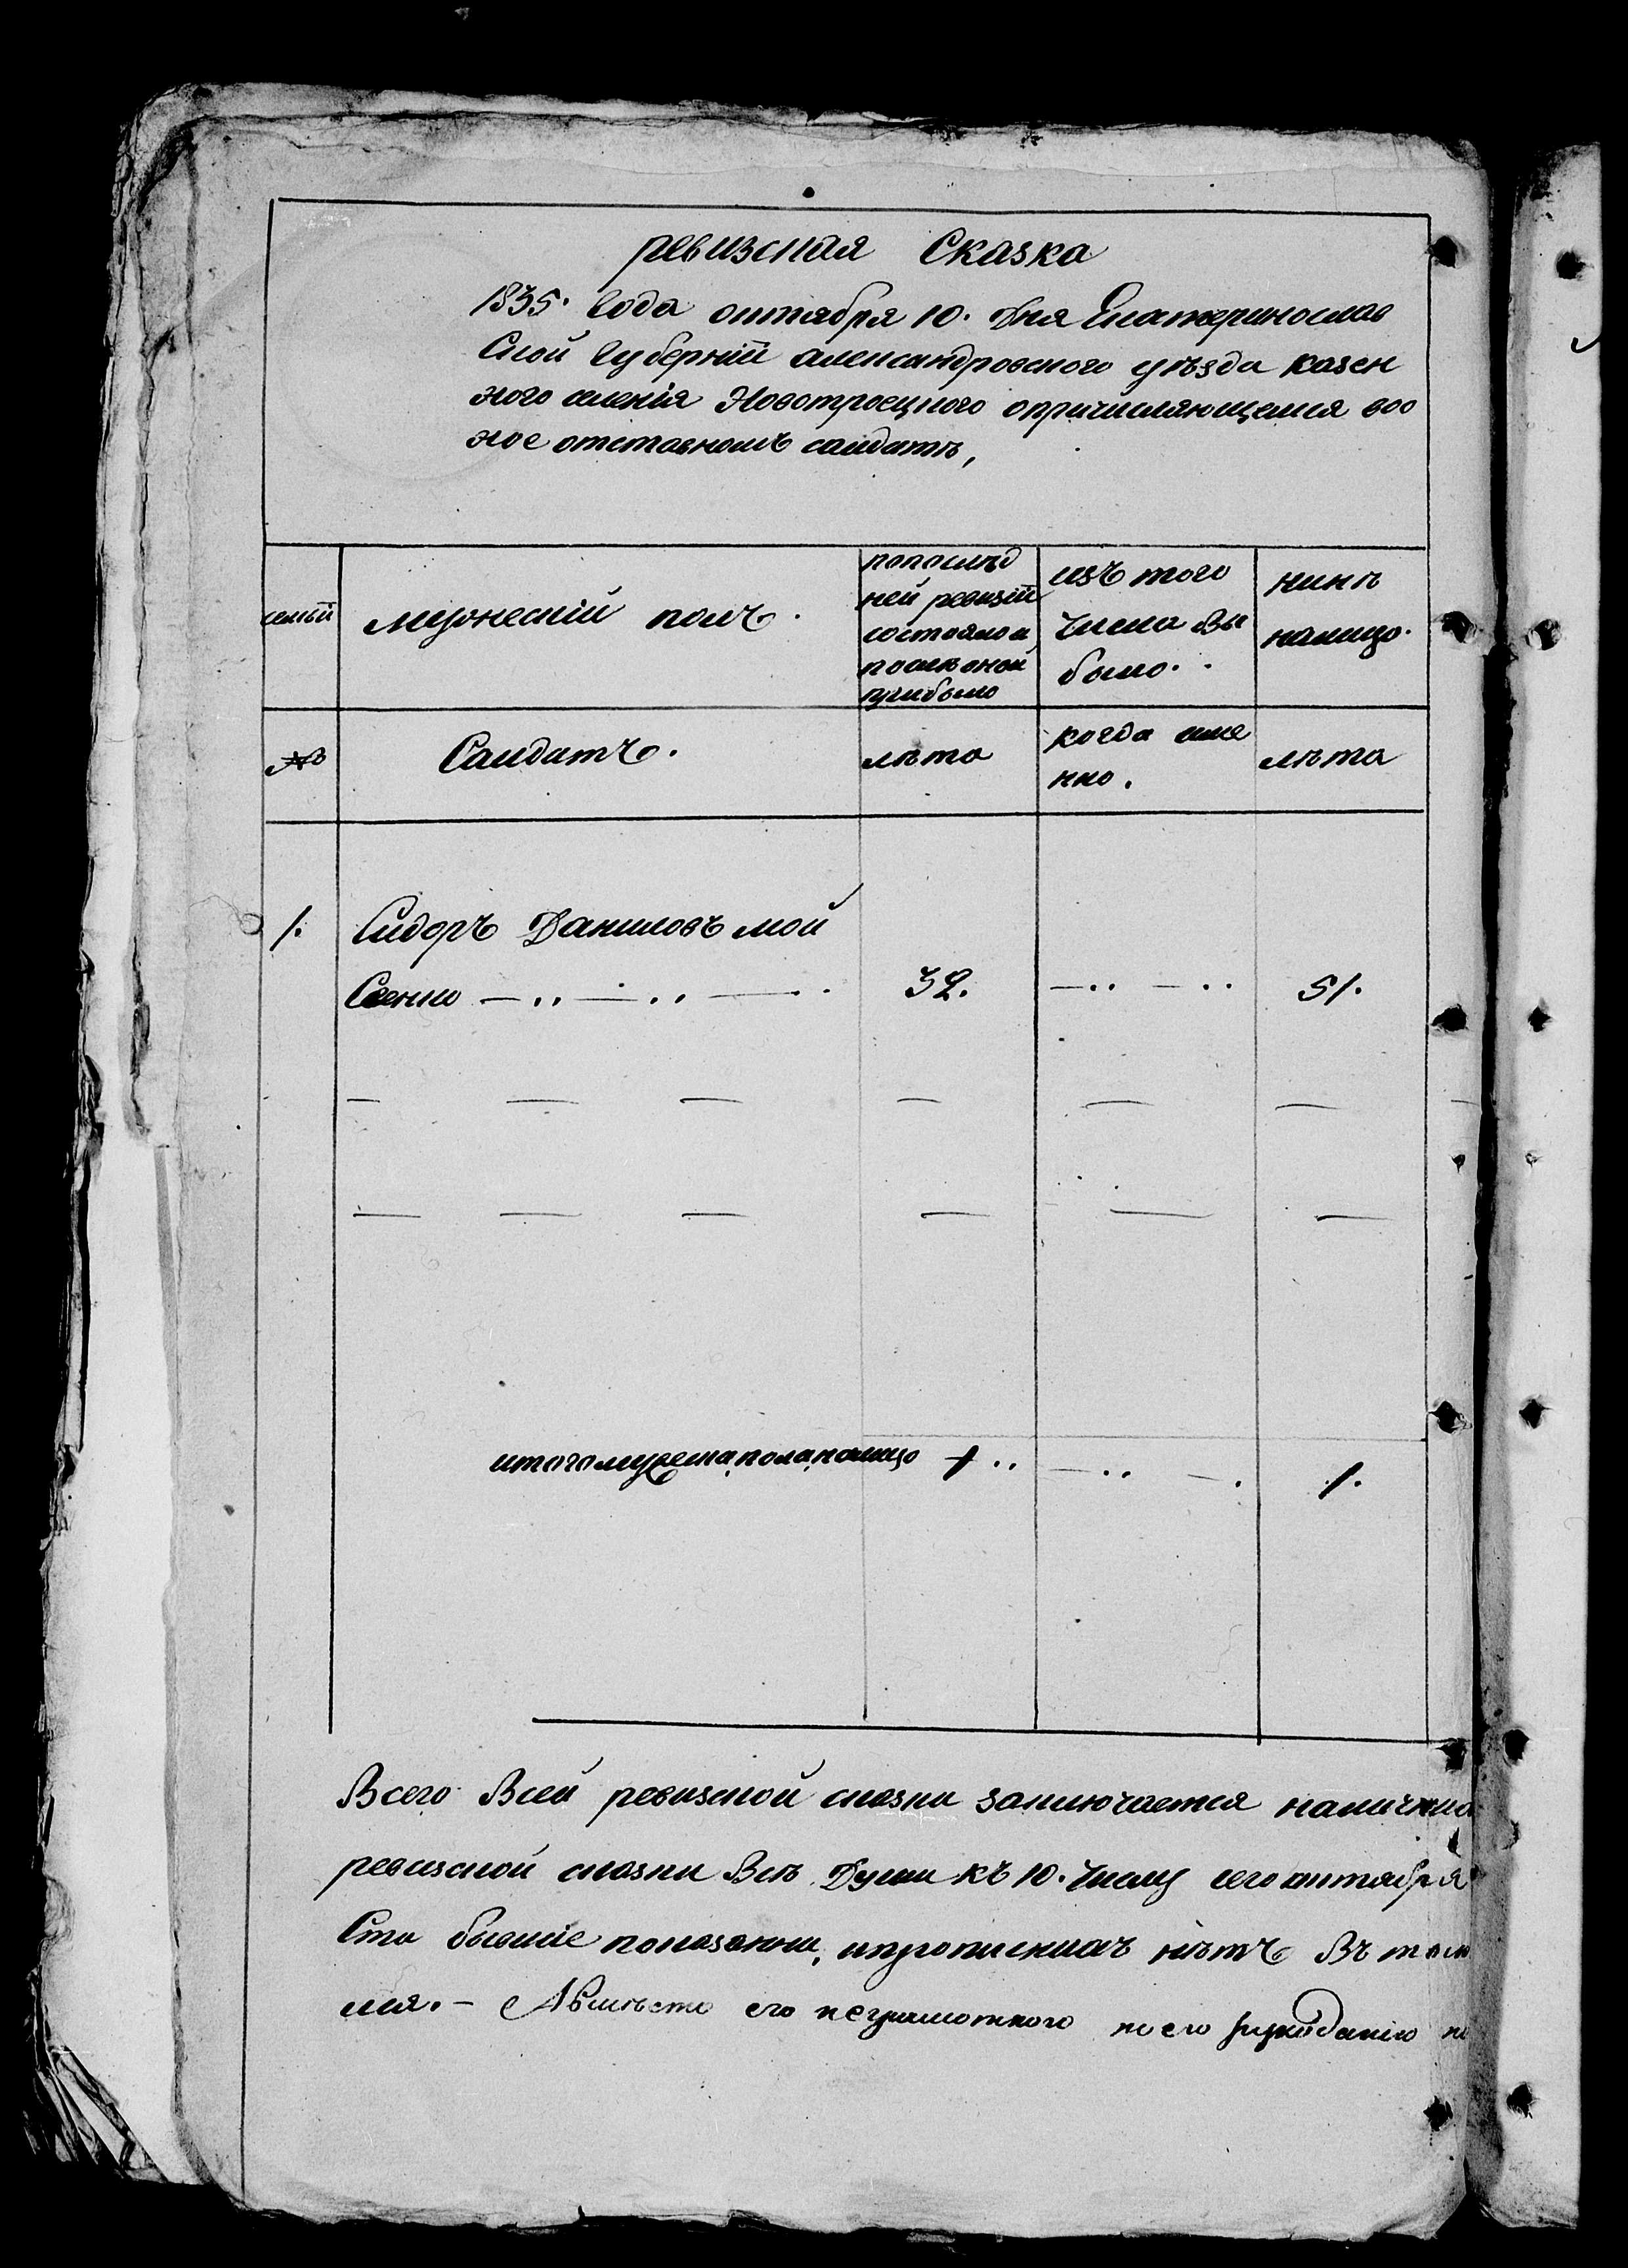 ревизская Сказка
1835. Года октября 10. Дня Екатеринослав
Ской Губернїи александровского уѣзда казен
ного селенія Новотроецкого опричисляющемся воо
ное отставномъ салдатѣ,
семьи
мужескій полъ.
попослѣд
ней ревизіи
состояло и
послѣ оной
прибыло
изъ того
числа вы
было.
нинѣ
налицо.
№
Салдатъ.
лѣта
когда име
нно.
лѣта
1. Сидоръ Даниловъ мой
Сеенко 32. 51.
итого мужеска пола налицо 1 1.
Всего Всей ревизской сказки заключается наличная
ревизской сказки Всѣ Души къ 10. Числу сего октября
Ста бывшіе показанни, ипрописнихъ нѣтъ Въ том
ся. - Авмѣсто его неграмотного по его рукоданію по